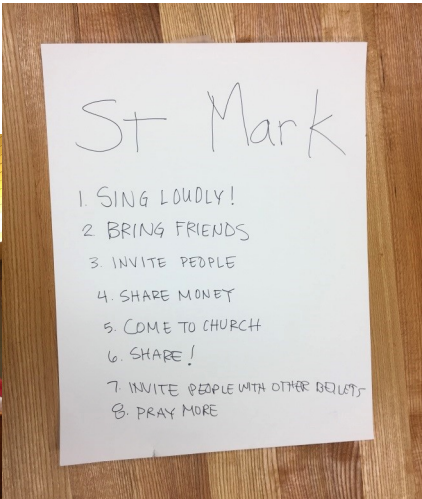 St Mark
1. SING LOUDLY!
2 BRING FRIENDS
3. INVITE PEOPLE
4. SHARE MONEY
5. COME TO CHURCH
6. SHARE!
7. INVITE PEOPLE WITH OTHER BEILEFS
8. PRAY MORE